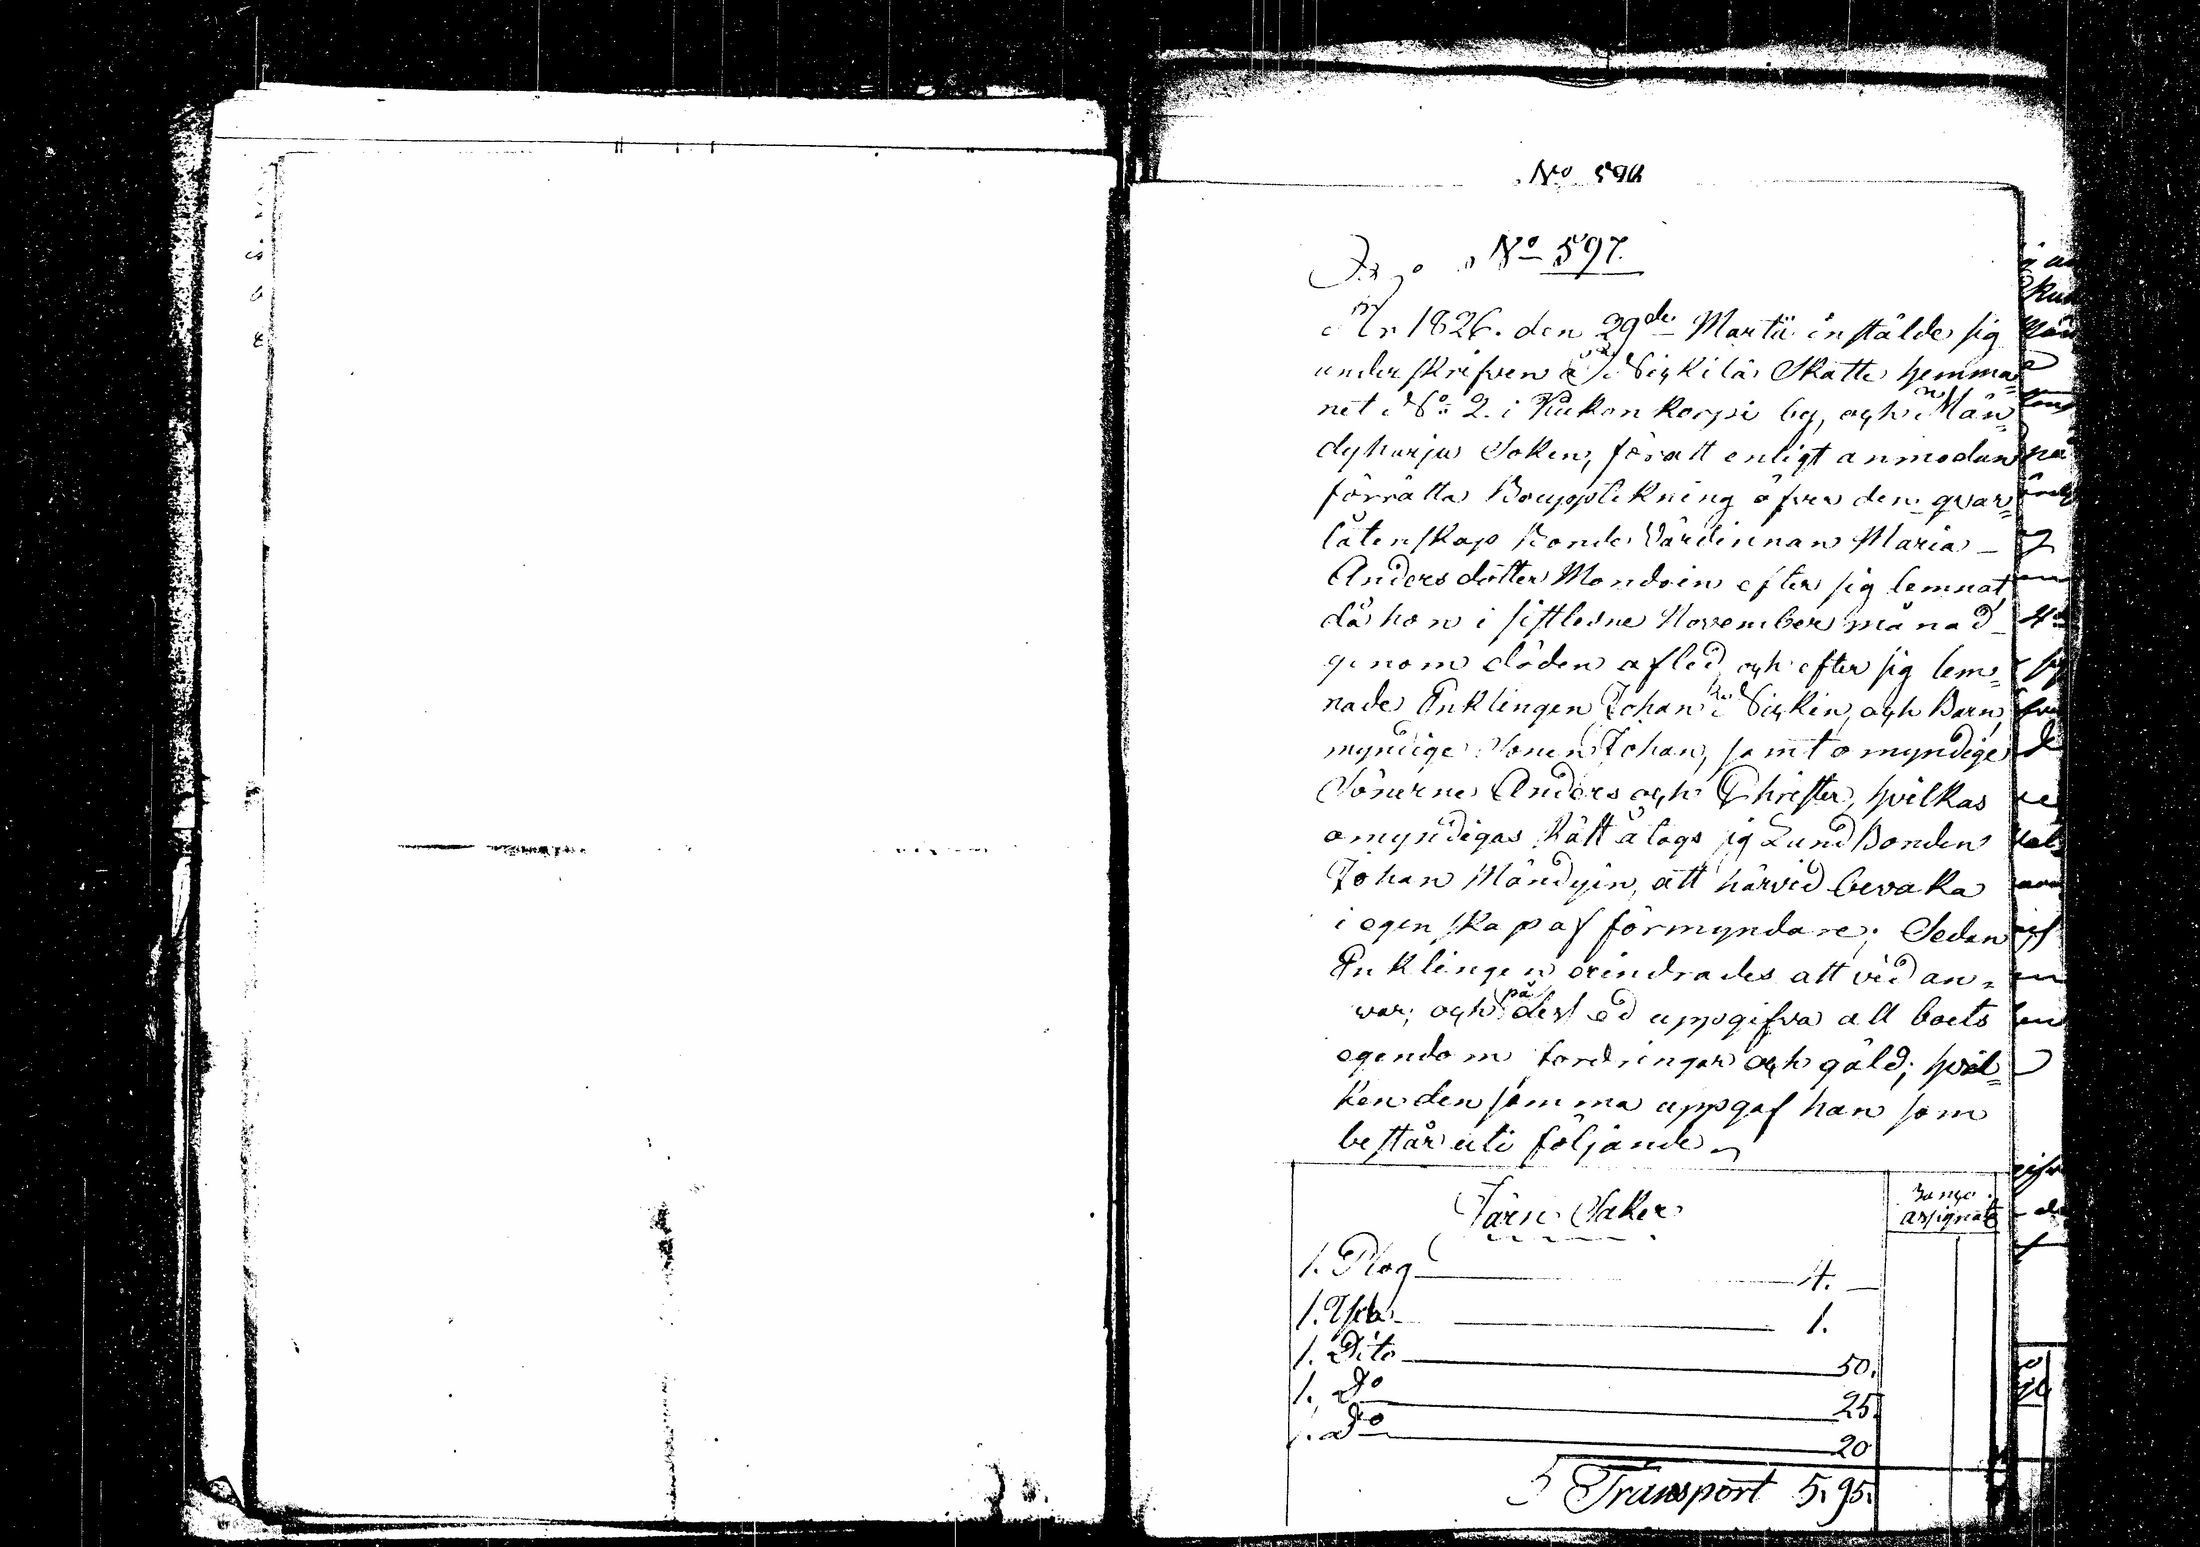 No 598
No 597.
År 1826. den 29de Martii instälde sig
underskrifven å Siekilä Skatte hemma=
net No 2. i Kukonkorpi by, och Män=
dyharju Soken, för att enligt anmodan
förrätta Boupptekning öfver den qvar=
låtenskap Bonde Värdinnan Maria
Andersdotter Mondoin efter sig lemnat,
då hon i sistledne November månad
genom döden afled, och efter sig lem=
nade Enklingen Johan Siekin, och Barn,
myndige Sonen Johan, samt omyndige
Sönerne Anders och Christer, hvilkas
omyndigas Rätt åtogs sig Lund Bonden
Johan Mändyin, att härvid bevaka
i egenskap af förmyndare; Sedan
Enklingen erindrades att vid an=
svar, och på dess ed uppgifva all boets
egendom fordringar och gäld; hvil=
ken densamma uppgaf han som
består uti följande
Järn Saker
Banco
assignat
1. Plog 4. —
1. Yxa 1.
1. Dito 50.
1. Do 25.
1. Do 20
Transport 5. 95.